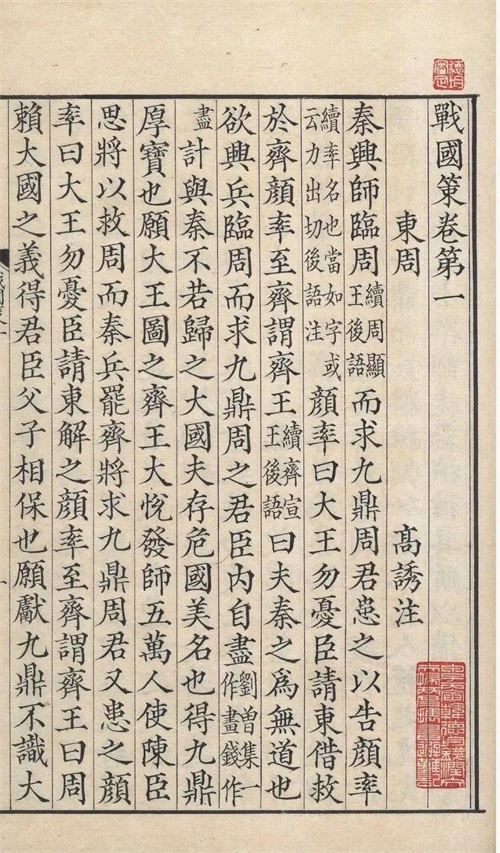 戰國策卷第一
東周 高誘注
秦興師臨周續周顯王後語而求九鼎周君患之以告顏率
續率名也當如字或云力出切後語注顏率曰大王勿憂臣請東借救
於齊顏率至齊謂齊王續齊宣王後語曰夫秦之爲無道也
欲興兵臨周而求九鼎周之君臣内自盡劉曾集一作畫錢作
盡計與秦不若歸之大國夫存危國美名也得九鼎
厚寶也願大王圖之齊王大恱發師五萬人使陳臣
思將以救周而秦兵罷齊將求九鼎周君又患之顏
率曰大王勿憂臣請東解之顏率至齊謂齊王曰周
賴大國之義得君臣父子相保也願獻九鼎不識大